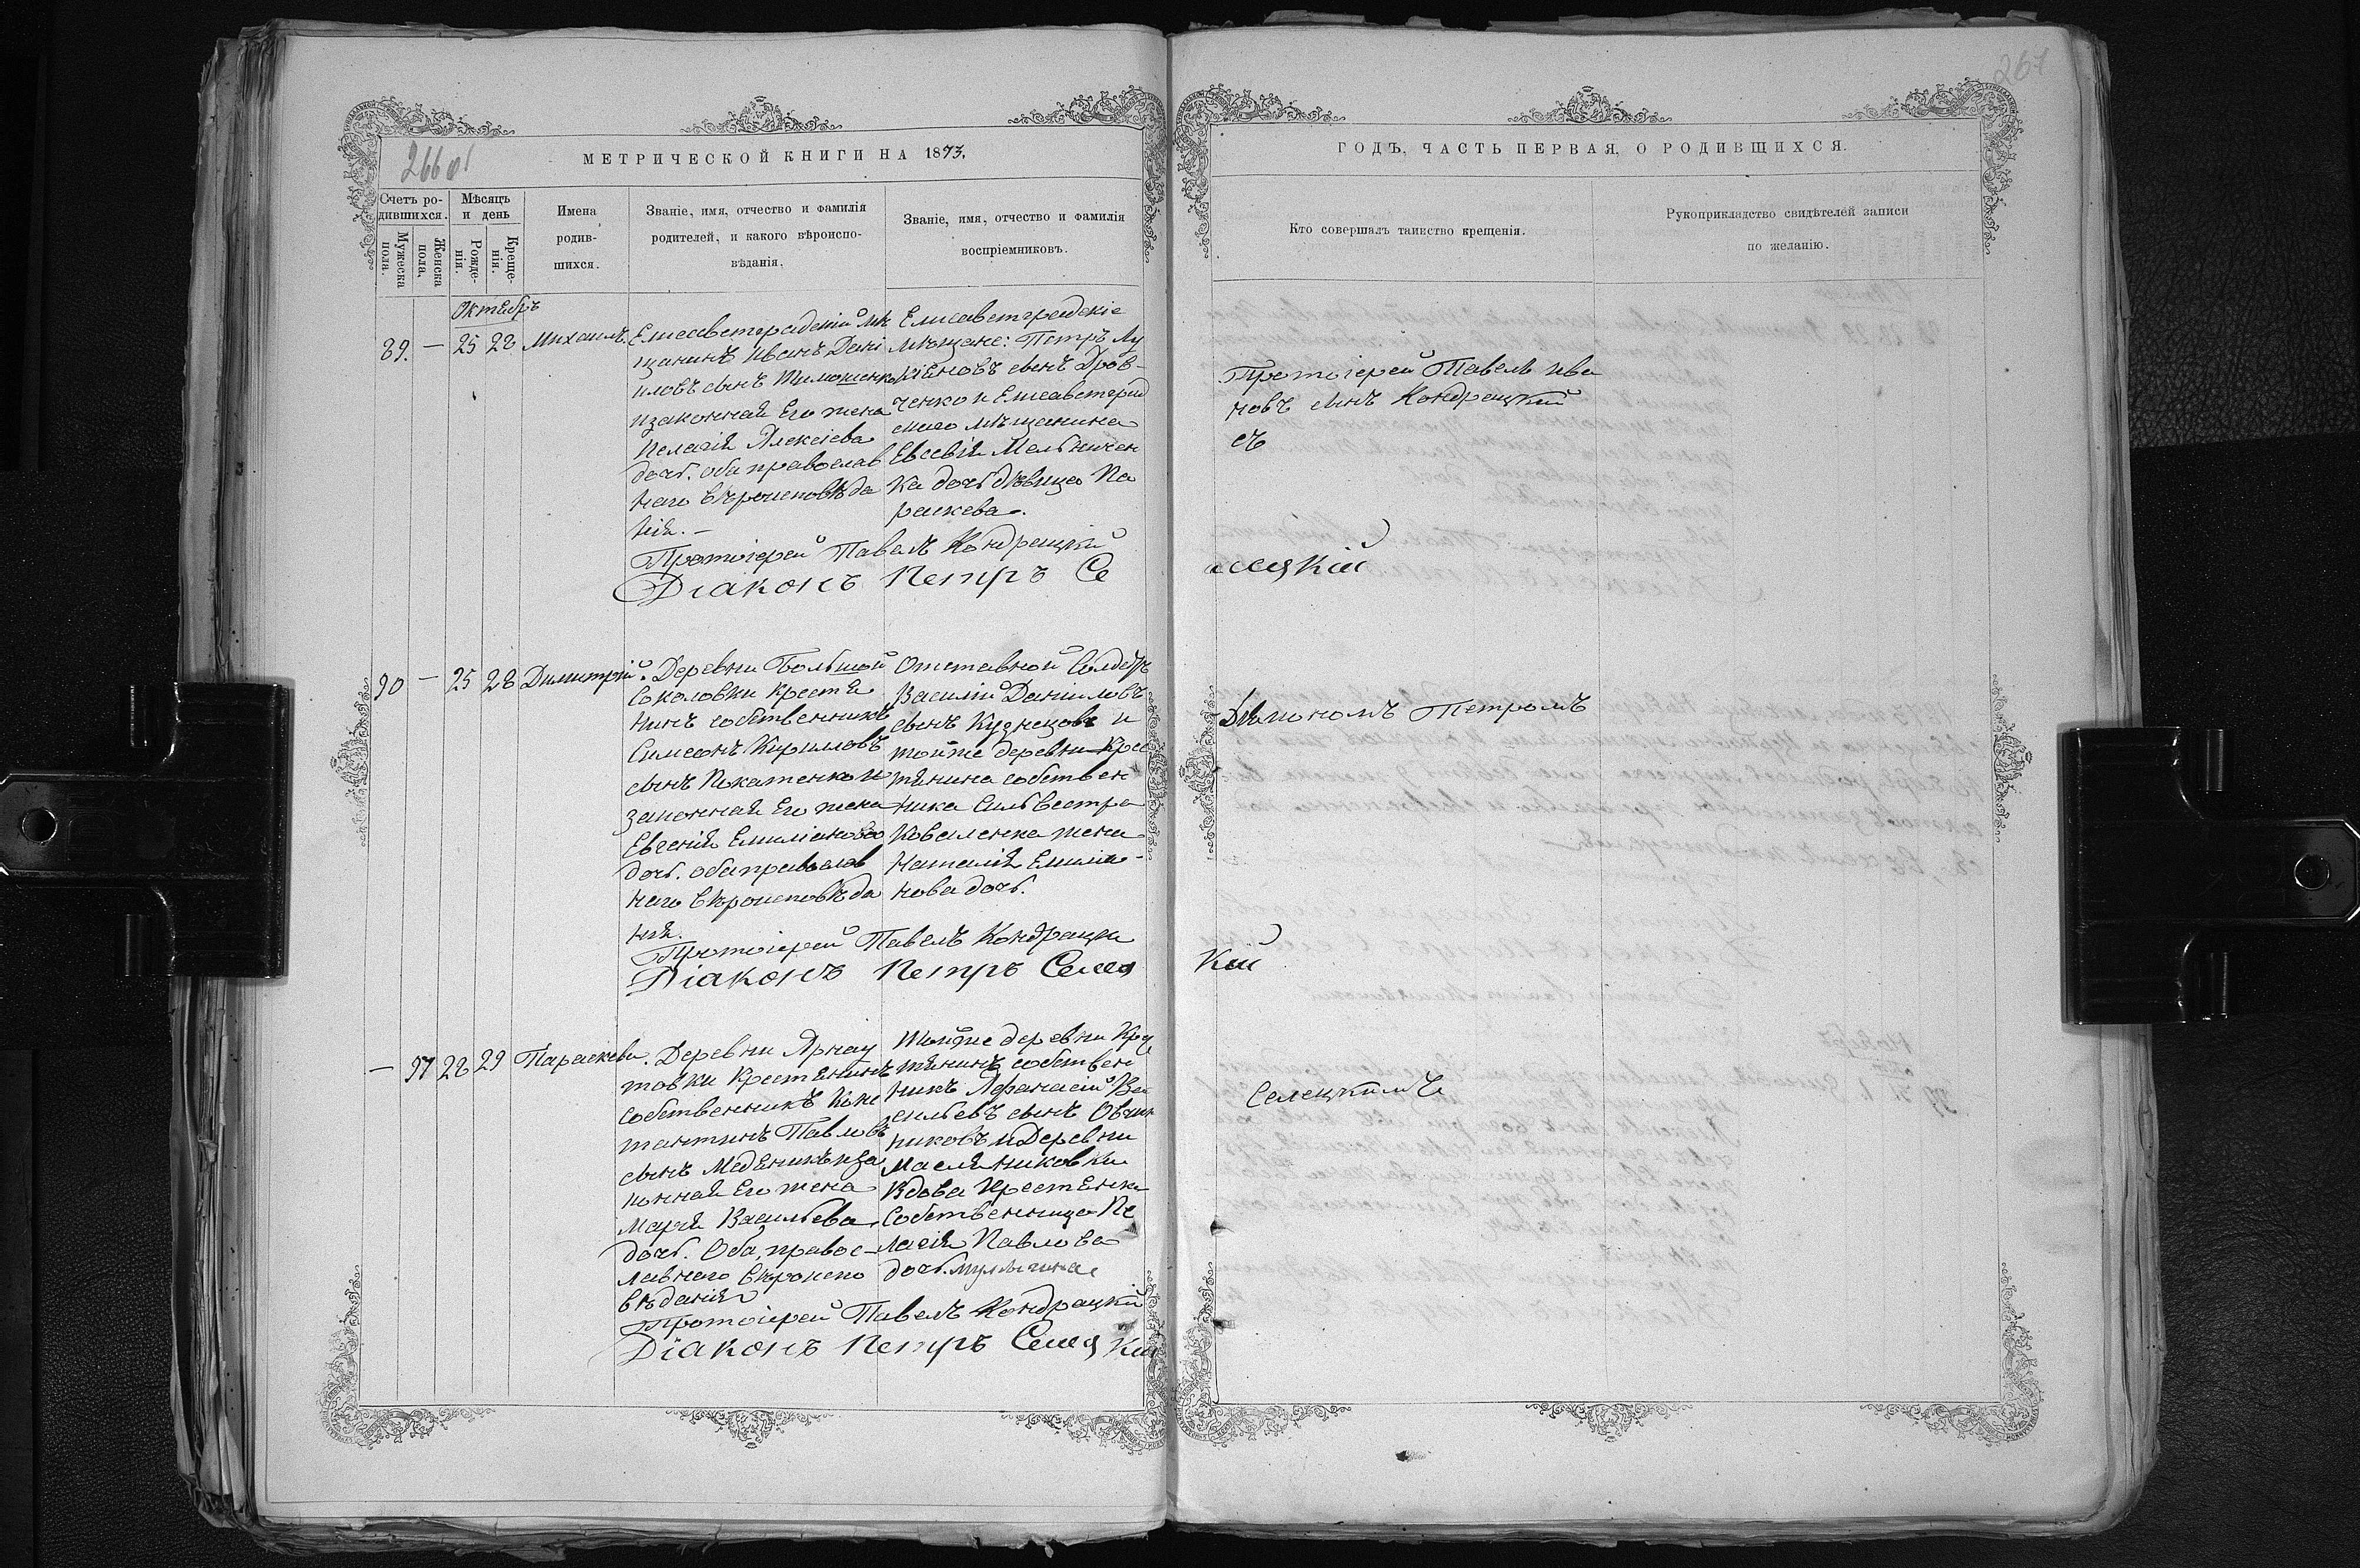 266 об
МЕТРИЧЕСКОЙ КНИГИ НА 1873,
Счетъ ро-
дившихся.
Мужеска
пола.
Женска
пола,
Мѣсяцъ
и день
Рожде-
нія.
Креще-
нія.
Имена
родив-
шихся.
Званіе, имя, отчество и фамилія
родителей, и какого вѣроиспо-
вѣданія.
Званіе, имя, отчество и фамилія
воспріемниковъ.
Октябрь
89. — 25 28 Михаилъ.
Елисаветградскій мѣ
щанинъ Иванъ Дані
иловъ сынъ Тимошенко
и законная Его жена
Пелагія Алексіева
дочь. оба православ
наго вѣроисповѣда
нія. —
Елисаветградскіе
мѣщане: Петръ Лу
кіяновъ сынъ Дров-
ченко и Елисаветград
скаго мѣщанина
Евсевія Мельничен
ка дочь дѣвица Па
раскева.
Протоіерей Павелъ Кондрацкій
Діаконъ Петръ Се
90 — 25 28 Димитрій.
Деревни Большой
Соколовки крестя
нинъ собственникъ
Симеонъ Кириловъ
сынъ и
законная Его жена
Евгенія Емиліанова
дочь. оба православ
наго вѣроисповѣда
нія.
Отставной Солдатъ
Василій Даніиловъ
сынъ Кузнецовъ и
тойже деревни Крес
тянина собствен
ника Сильвестра
Коваленка жена
Наталія Емилія-
нова дочь.
Протоіерей Павелъ Кондрацкі
Діаконъ Петръ Селец
— 97 28 29 Параскева.
Деревни Арнау
товки Крестянинъ
собственникъ Конс
тантинъ Павловъ
сынъ Медяникъ и за
конная Его жена
Марія Васильева
дочь. Оба, правос-
лавнаго вѣроиспо
вѣданія
Тойже деревни Крес
тянинъ собствен
никъ Афанасій Ва
сильевъ сынъ Овчин
никовъ и Деревни
Маслениковки
Вдова Крестянка
Собственница Пе
лагія Павлова
дочь.
Протоіерей Павелъ Кондрацкій
Діаконъ Петръ Селецкій
267
ГОДЪ, ЧАСТЬ ПЕРВАЯ, О РОДИВШИХСЯ.
Кто совершалъ таинство крещенія.
Рукоприкладство свидѣтелей записи
по желанію.
Протоіерей Павелъ Ива
новъ сынъ Кондрацкій
съ
лецкій
Діакономъ Петромъ
кій
Селецкимъ